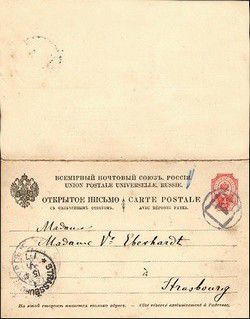 ВСЕМІРНЫЙ ПОЧТОВЫЙ СОЮЗЪ. РОССІЯ.
UNION POSTALE UNIVERSELLE. RUSSIE.
ОТКРЫТОЕ ПИСЬМО CARTE POSTALE
СЪ ОПЛАЧЕННЫМЪ ОТВѢТОМЪ. AVEC RÉPONSE PAYÉE.
Madame
Madame Vᵉ Eberhardt
à
Strasbourg
STRASSBURG
На этой сторонѣ пишется только адресъ. — Côté réservé exclusivement à l'adresse.